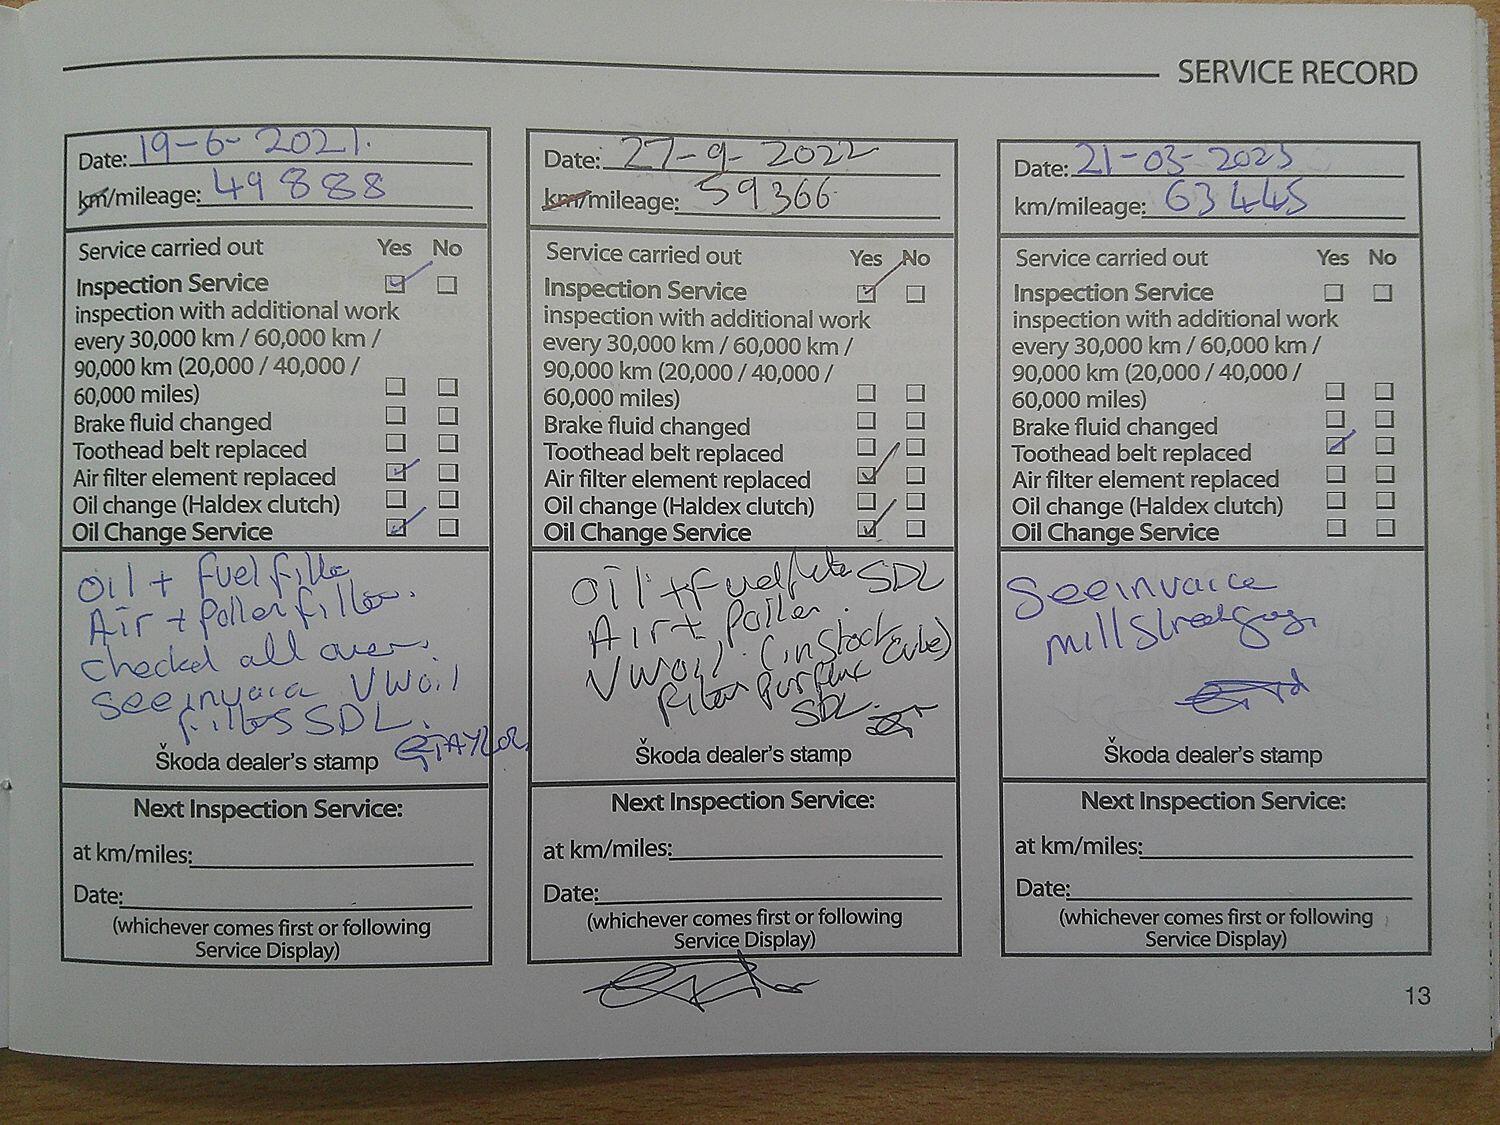 SERVICE RECORD
Date: 19-6-2021.
km/mileage: 49888
Service carried out Yes No
Inspection Service
inspection with additional work
every 30,000 km / 60,000 km /
90,000 km (20,000 / 40,000 /
60,000 miles)
Brake fluid changed
Toothead belt replaced
Air filter element replaced
Oil change (Haldex clutch)
Oil Change Service
Oil + Fuel filter
Air + Pollen filter.
checked all over.
See invoice VW oil
filters SDL.
GTAYLOR
Škoda dealer's stamp
Next Inspection Service:
at km/miles:
Date:
(whichever comes first or following
Service Display)
Date: 27-9-2022
km/mileage: 59366
Service carried out Yes No
Inspection Service
inspection with additional work
every 30,000 km / 60,000 km /
90,000 km (20,000 / 40,000 /
60,000 miles)
Brake fluid changed
Toothead belt replaced
Air filter element replaced
Oil change (Haldex clutch)
Oil Change Service
Oil + Fuel filter SDL
Air + Pollen.
VW oil. (instock
SDL.
Škoda dealer's stamp
Next Inspection Service:
at km/miles:
Date:
(whichever comes first or following
Service Display)
Date: 21-03-2023
km/mileage: 63445
Service carried out Yes No
Inspection Service
inspection with additional work
every 30,000 km / 60,000 km /
90,000 km (20,000 / 40,000 /
60,000 miles)
Brake fluid changed
Toothead belt replaced
Air filter element replaced
Oil change (Haldex clutch)
Oil Change Service
See invoice
Mill Street
Škoda dealer's stamp
Next Inspection Service:
at km/miles:
Date:
(whichever comes first or following
Service Display)
13